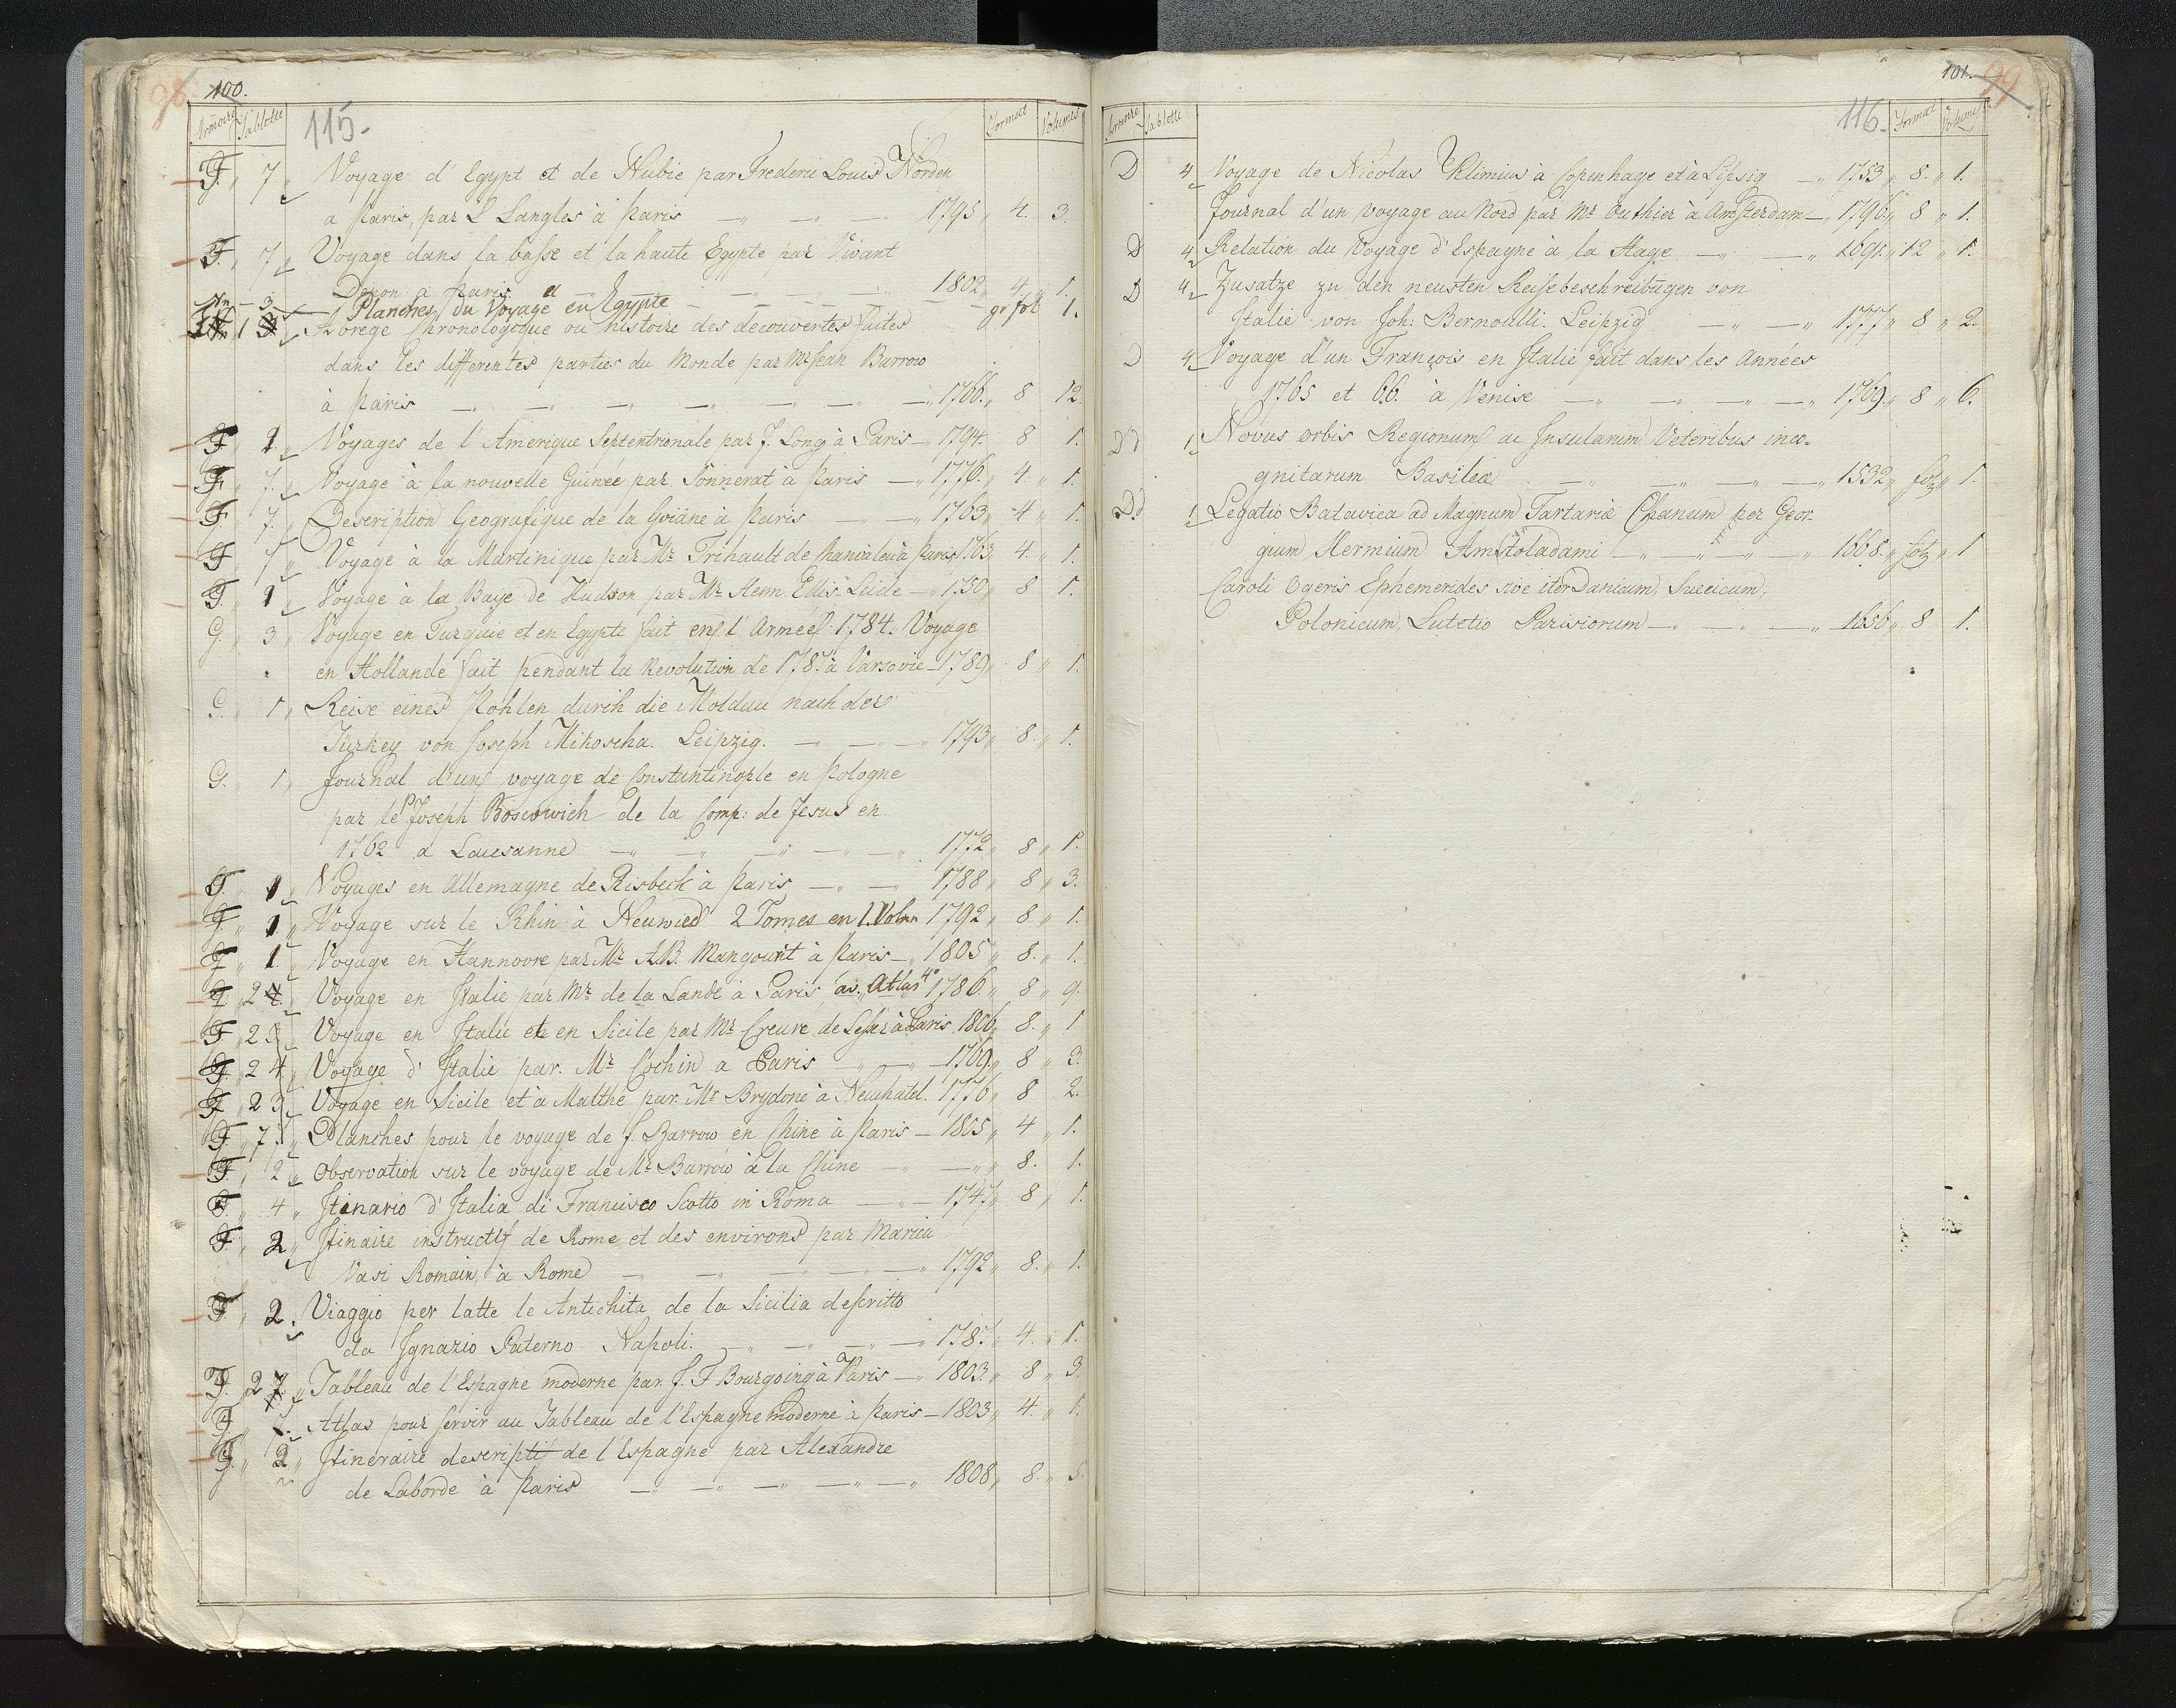 98. 100.
Armoire Tablette 115. Format Volumes
F. 7 Voyage d'Egypt et de Nubie par Frederic Louis Norden
a Paris, par L Langles à Paris — — — 1795 4. 3.
F. 7 Voyage dans la basse et la haute Egypte par Vivant
Denon a Paris — — — 1802 4 1.
3 Planches du Voyage en Egypte — — — gr fol 1.
1 Abregé Chronologique ou histoire des decouvertes faites
dans les differentes parties du Monde par Mr Jean Barrow
à Paris — — — — — — — 1766. 8 12.
F 1. Voyages de l'Amerique Septentrionale par J. Long à Paris — 1794. 8 1.
F 7. Voyage à la nouvelle Guinée par Sonnerat à Paris — 1776. 4. 1.
F. 7. Description Geografique de la Goiäne à Paris — 1763 4 1.
F 7 Voyage à la Martinique par Mr Trihault de Chanvaleu à Paris 1763 4. 1.
F. 1 Voyage à la Baye de Hudson par Mr Henri Ellis Leide — 1750 8 1.
G. 3 Voyage en Turquie et en Egypte fait en l'Armeé 1784. Voyage
en Hollande fait pendant la Revolution de 1787 à Varsovie — 1789 8 1.
G. 1 Reise eines Pohlen durch die Moldau nach der
Türkey von Joseph Mikoscha. Leipzig. — — — 1793 8. 1.
G. 1 Journal d'un voyage de Constantinople en Pologne
par le P Joseph Boscowich de la Comp: de Jesus en
1762 a Lausanne — — — — — 1772 8 1.
F. 1 Voyages en Allemagne de Risbeck à Paris — — 1788 8 3.
F. 1. Voyage sur le Rhin à Neuwied 2 Tomes en 1. Volum 1792 8 1.
F 1. Voyage en Hannovre par Mr A.B. Mangourit à Paris — 1805 8. 1.
F 2 Voyage en Italie par Mr de la Lande à Paris av. Atlas 4° 1786. 8 9.
F. 23 Voyage en Italie et en Sicile par Mr Creuré de Lesser à Paris 1806 8. 1
F. 24 Voyage d'Italie par. Mr Cochin a Paris — — 1769. 8 3.
F 23 Voyage en Sicile et à Malthe par. Mr Brydone à Neuchatel. 1776 8 2.
F. 7. Planches pour le voyage de J. Barrow en Chine à Paris — 1805 4 1.
F. 2 Observation sur le voyage de Mr Barrow à la Chine — — 8. 1.
F 4 Itinario d'Italia di Francisco Scotto in Roma — 1747 8 1.
F. 2 Itinaire instructif de Rome et des environs par Marien
Vasi Romain, à Rome — — — — — 1792 8. 1.
F. 2. Viaggio per latte le Antichita de la Sicilia descritto
da Ignazio Paterno Napoli. — — — — 1787 4. 1.
F. 2 Tableau de l'Espagne moderne par. J. F Bourgoing à Paris — 1803. 8 3.
F. 7. Atlas pour servir au Tableau de l'Espagne moderne à Paris — 1803 4. 1.
F. 2 Itineraire descriptif de l'Espagne par Alexandre
de Laborde à Paris — — — — — 1808 8. 5.
101. 99
Armoire Tablette 116. Format Volumes
D 4 Voyage de Nicolas Klimius à Copenhage et à Lipsig — 1753 8. 1.
Journal d'un voyage au Nord par Mr Outhier à Amsterdam — 1746. 8 1.
D 4 Relation du Voyage d'Espagne à la Hage — — 1691. 12 1.
D 4 Zusatze zu den neusten Reisebeschreibungen von
Italie von Joh: Bernoulli. Leipzig — — 1777 8 2.
D 4 Voyage d'un François en Italie fait dans les Années
1765 et 66. à Venise — — — — 1769. 8 6.
Dd 1 Novus orbis Regionum ac Insularum Veteribus inco-
gnitarum Basileæ — — — — 1532 fol 1.
Dd 1 Legatio Batavica ad Magnum Tartariæ Chanum per Geor-
gium Hermium Amstoladami — — — — 1668. fol 1
Caroli Ogeris Ephemerides sive iter Danicum, Suecicum,
Polonicum. Lutetio Parisiorum — — — 1656 8 1.